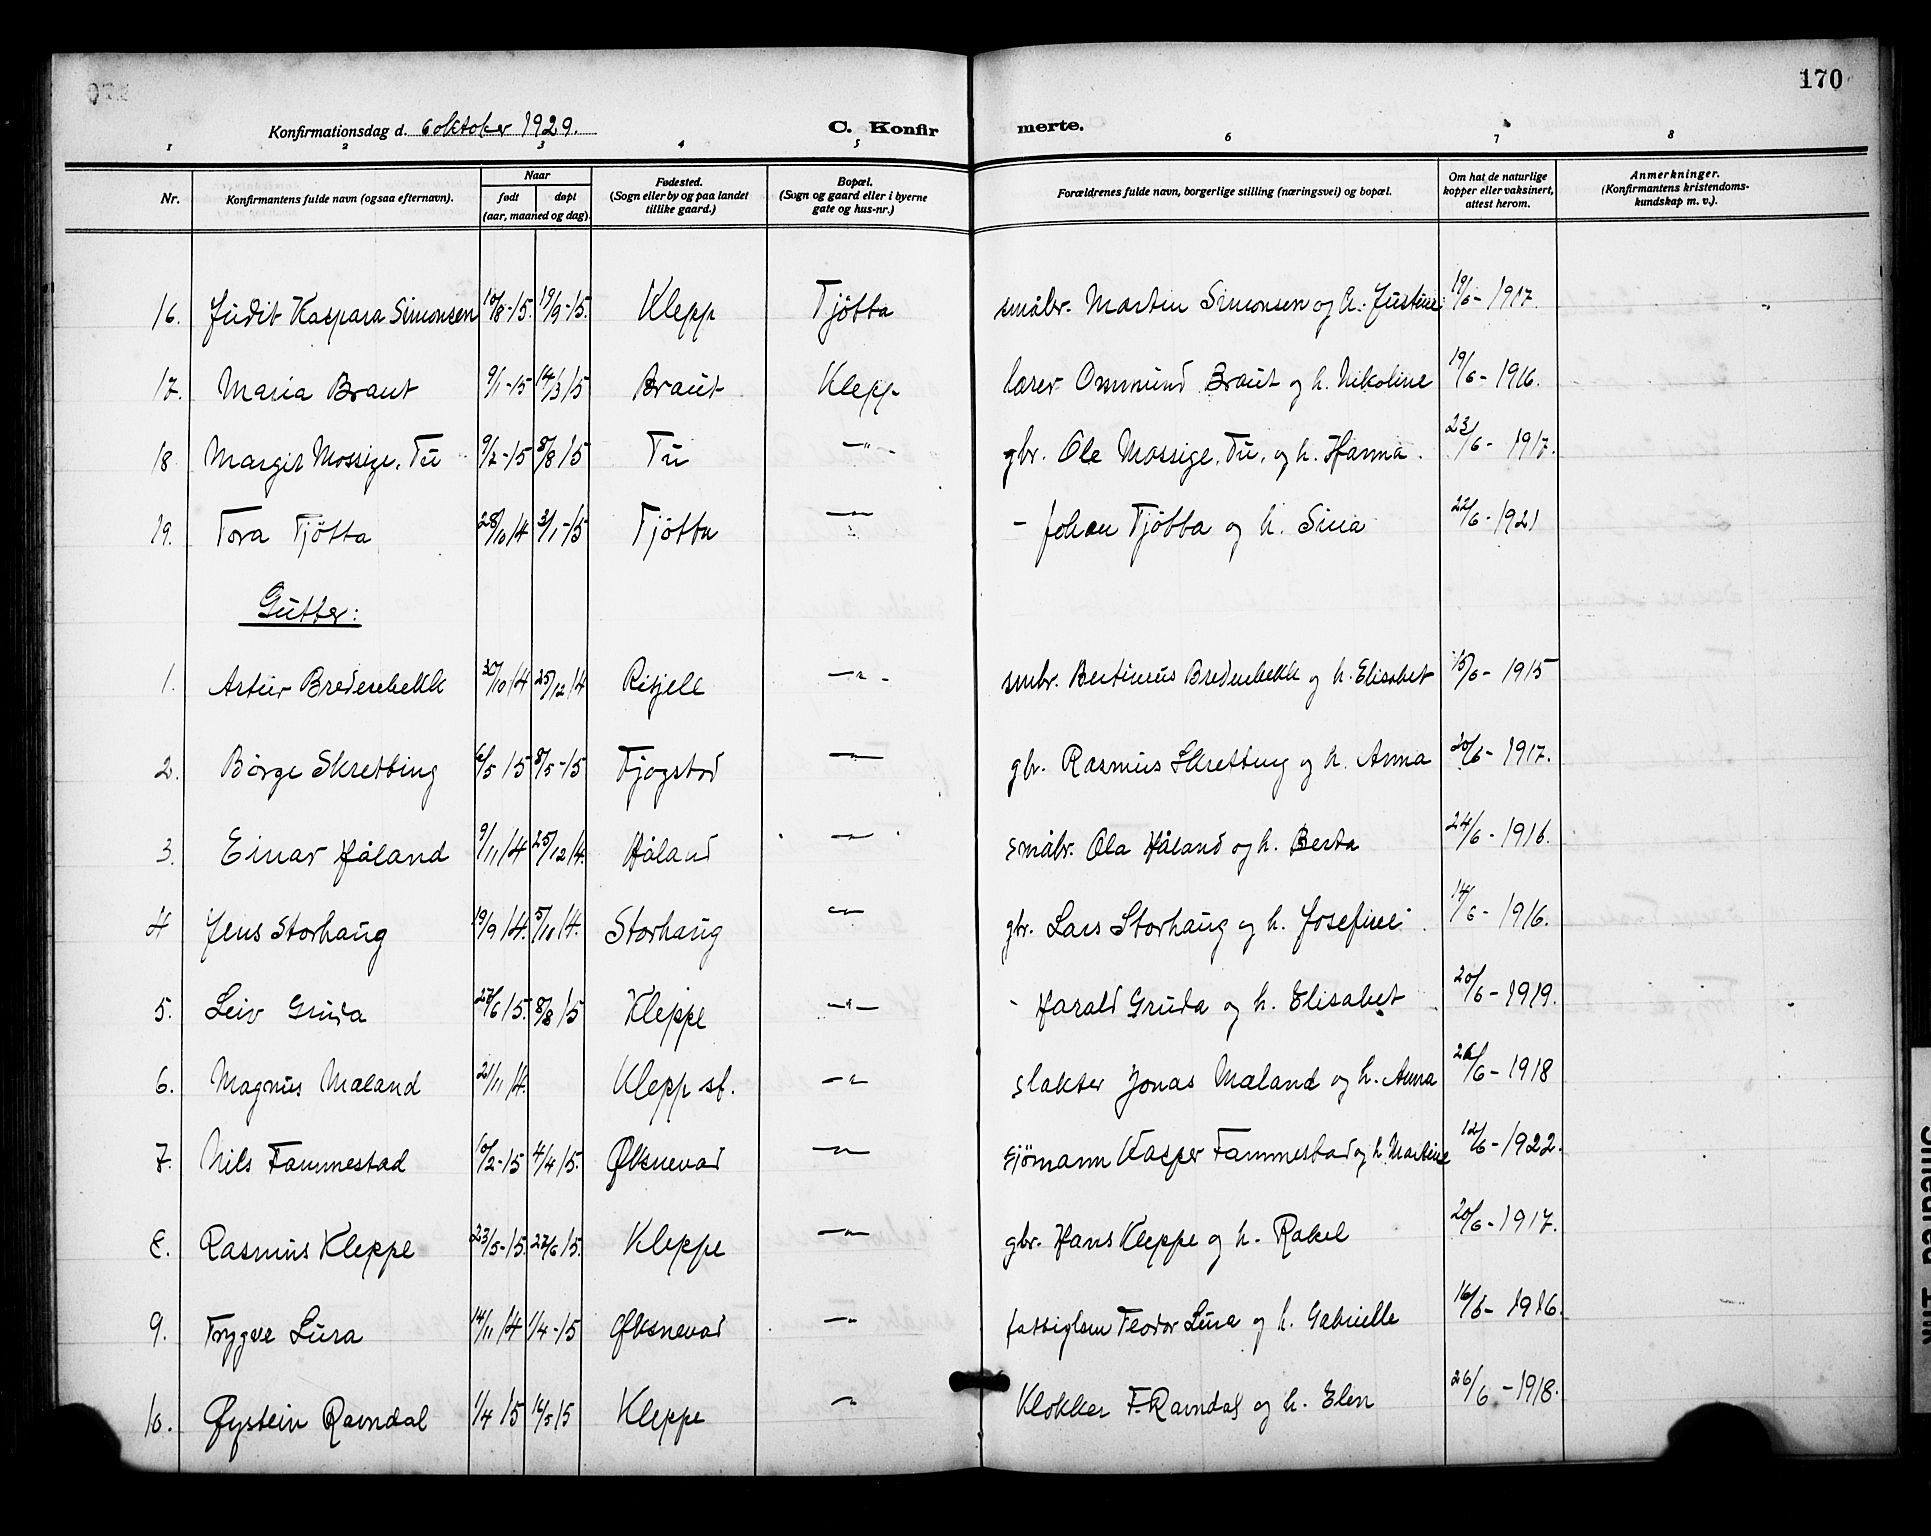 170
Konfirmationsdag d. 6 oktober 1929.
C. Konfirmerte.
1 2 3 4 5 6 7 8
Nr. Konfirmantens fulde navn (ogsaa efternavn). Naar født døpt (aar, maaned og dag). Fødested. (Sogn eller by og paa landet tillike gaard.) Bopæl. (Sogn og gaard eller i byerne gate og hus-nr.) Forældrenes fulde navn, borgerlige stilling (næringsvei) og bopæl. Om hat de naturlige kopper eller vaksinert, attest herom. Anmerkninger. (Konfirmantens kristendomskundskap m. v.).
16. Judit Kaspara Simonsen 10/8-15. 19/9-15. Klepp Tjøtta småbr. Martin Simonsen og h. Justine 19/6-1917.
17. Maria Braut 9/1-15 14/3 15 Braut Klepp lærer Ommund Braut og h. Nikoline 19/6-1916.
18 Margit Mossige, Tu 9/2-15 8/8 15 Tu -"- gbr. Ole Mossige, Tu, og h. Hanna. 23/6-1917.
19. Tora Tjøtta 28/10 14 3/1-15 Tjøtta -"- - Johan Tjøtta og h. Sina 22/6-1921
Gutter:
1. Artur Bredenbekk 30/10 14 25/12 14 Reijell -"- smbr. Bertinius Bredenbekk og h. Elisabet 15/6-1915
2. Børge Skretting 6/5 15 8/5-15 Fjogstad -"- gbr. Rasmus Skretting og h. Anna 20/6-1917.
3. Einar Håland 9/11 14 25/12 14. Håland -"- småbr. Ola Håland og h. Berta 24/6-1916.
4 Jens Storhaug 19/9 14. 5/10 14. Storhaug -"- gbr. Lars Storhaug og h. Josefine 14/6-1916.
5. Leiv Gruda 27/6 15. 8/8 15 Kleppe -"- - Harald Gruda og h. Elisabet 20/6-1919.
6. Magnus Mæland 2/11 14. Klepp st. -"- slakter Jonas Mæland og h. Anna 26/6-1918
7. Nils Fammestad 10/2-15 4/4 15. Øksnevad -"- sjømann Kasper Fammestad og h. Martine 12/6-1922.
8. Rasmus Kleppe 23/5-15. 27/6 15. Kleppe -"- gbr. Hans Kleppe og h. Rakel 20/6-1917.
9. Trygve Lura 14/11 14 1/4-15 Øksnevad -"- Teodor Lura og h. Gabrielle 16/6-1916.
10. Øystein Ravndal 1/4 15 16/5 15 Kleppe -"- Klokker F. Ravndal og h. Elen 26/6-1918.